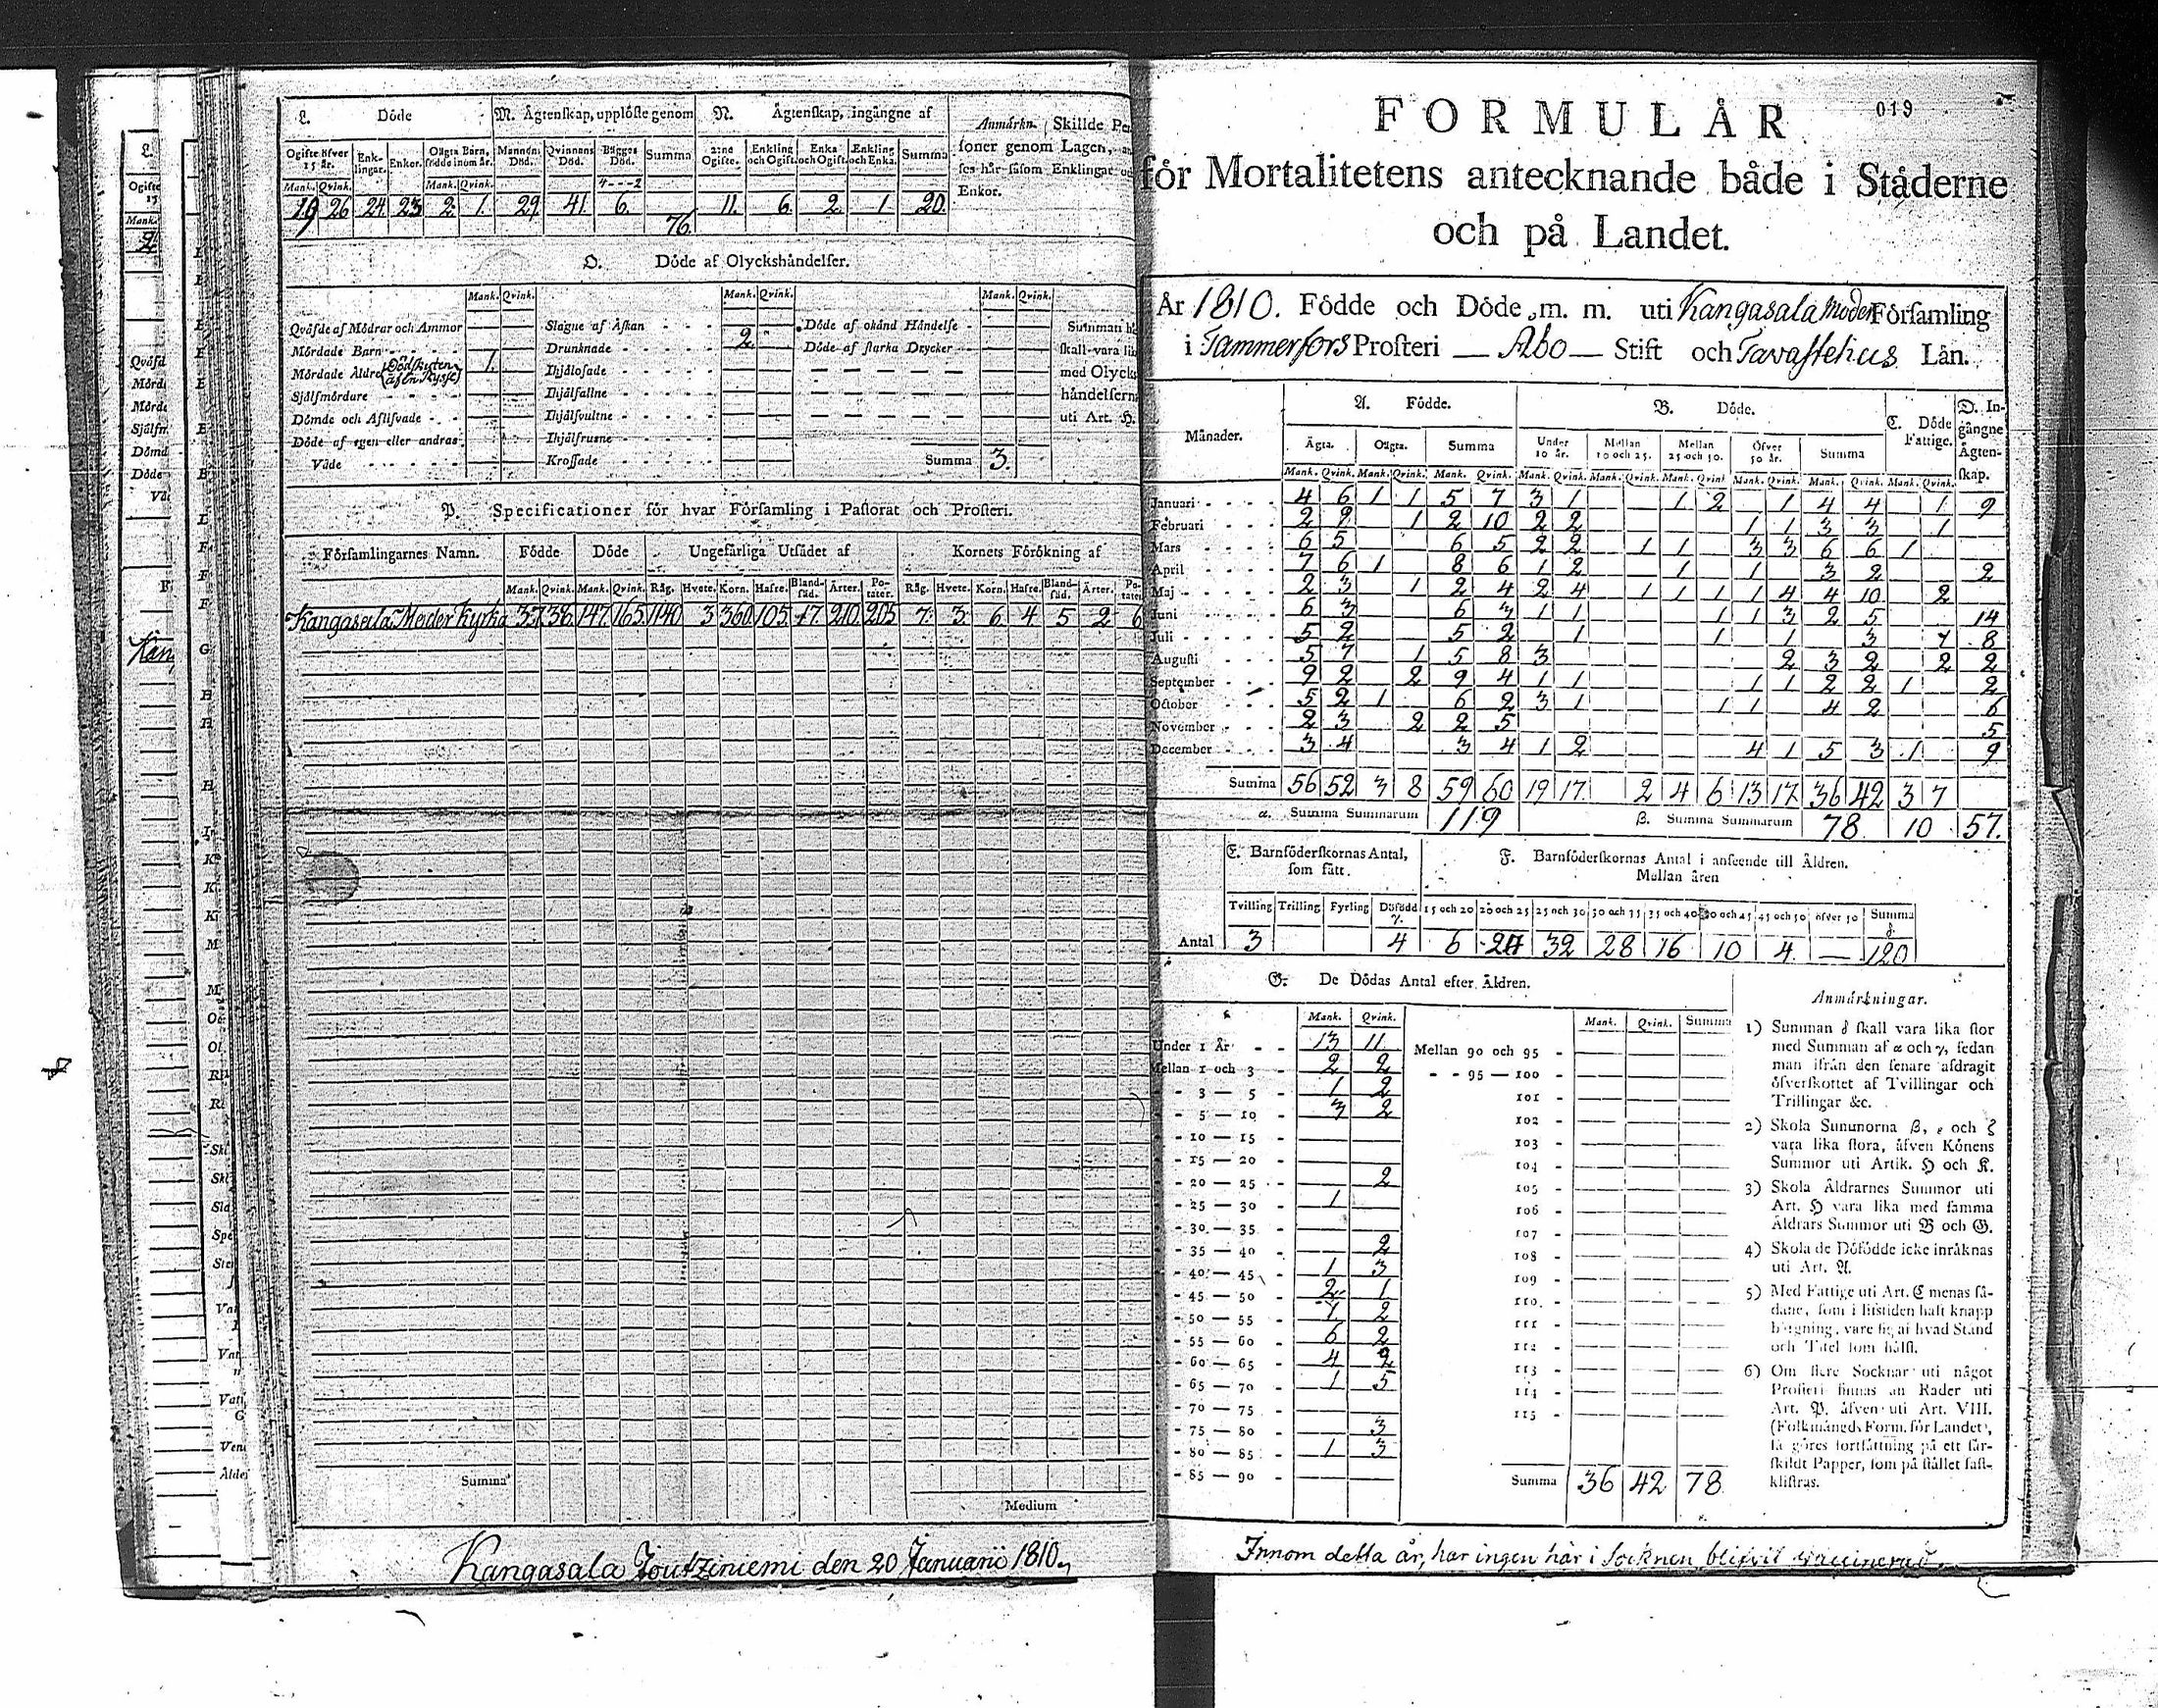 L. Döde
M. Ägtenskap, upplöste genom
N. Ägtenskap, ingångne af
Anmärkn. Skillde Per
soner genom Lagen,
ses här såsom Enklingar
Enkor.
Ogifte öfver 15 år. Enklingar. Enkor. Oägta Barn, födde inom år. Mannens Död. Qvinnans Död. Bägges Död. Summa 2:ne Ogifte. Enkling och Ogift. Enka och Ogift. Enkling och Enka. Summa
Mank. Qvink. Mank. Qvink.
19 26 24 23 2 1 29 41 6 76 11 6 2 1 20
O. Döde af Olyckshändelser.
Mank. Qvink. Mank. Qvink. Mank. Qvink.
Qväfde af Mödrar och Ammor Slagne af Åskan Döde af okänd Händelse
Mördade Barn Drunknade 2 Döde af starka Drycker
Mördade Äldre 1 Ihjälosade
Sjelfmördare Ihjälfallne
Dömde och Aflifvade Ihjälsvultne
Döde af egen eller andras Ihjälfrusne
Våde Krossade Summa 3.
P. Specificationer för hvar Församling i Pastorat och Prosteri.
Församlingarnes Namn. Födde Döde Ungefärliga Utsädet af Kornets Förökning af
Mank. Qvink. Mank. Qvink. Råg. Hvete. Korn. Hafre. Blandsäd. Ärter. Potater. Råg. Hvete. Korn. Hafre. Blandsäd. Ärter. Potater.
Kangasala Moder Kyrka 37 36 147 165 1140 3 360 105 17 210 205 7 3 6 4 5 2 6
Summa
Medium
Kangasala Joutziniemi den 20 Januarii 1810
019
FORMULÄR
för Mortalitetens antecknande både i Städerne
och på Landet.
År 1810. Födde och Döde m. m. uti Kangasala Moder Församling
i Tammerfors Prosteri — Abo — Stift och Tavastehus Län.
Månader. A. Födde. B. Döde. C. Döde Fattige. D. Ingångne Ägtenskap.
Ägta. Oägta. Summa Under 10 år. Mellan 10 och 25. Mellan 25 och 50. Öfver 50 år. Summa
Mank. Qvink. Mank. Qvink. Mank. Qvink. Mank. Qvink. Mank. Qvink. Mank. Qvink. Mank. Qvink. Mank. Qvink. Mank. Qvink.
Januari 4 6 1 1 5 7 3 1 1 2 1 4 4 1 9
Februari 2 9 1 2 10 2 2 1 1 3 3 1
Mars 6 5 6 5 2 2 1 1 3 3 6 6 1
April 7 6 1 8 6 1 2 1 1 3 2 2
Maj 2 3 1 2 4 2 4 1 1 1 1 4 4 10 2
Juni 6 3 6 3 1 1 1 1 3 2 5 14
Juli 5 2 5 2 1 1 1 3 8
Augusti 5 7 1 5 8 3 2 3 2 2 2
September 9 2 2 9 4 1 1 1 1 2 2 1 2
October 5 2 1 6 2 3 1 1 1 4 2 6
November 2 3 2 2 5 5
December 3 4 3 4 1 2 4 1 5 3 1 9
Summa 56 52 3 8 59 60 19 17 2 4 6 13 17 36 42 3 7
α. Summa Summarum 119 β. Summa Summarum 78 10 57.
E. Barnföderskornas Antal, som fått. F. Barnföderskornas Antal i anseende till Åldren.
Mellan åren
Tvilling Trilling Fyrling Dödfödd γ. 15 och 20 20 och 25 25 och 30 30 och 35 35 och 40 40 och 45 45 och 50 öfver 50 Summa δ
Antal 3 4 6 24 32 28 16 10 4 — 120
G. De Dödas Antal efter Åldren.
Mank. Qvink. Mank. Qvink. Summa
Under 1 År 13 11 Mellan 90 och 95
Mellan 1 och 3 2 2 95 — 100
3 — 5 1 2 101
5 — 10 3 2 102
10 — 15 103
15 — 20 104
20 — 25 2 105
25 — 30 1 106
30 — 35 107
35 — 40 2 108
40 — 45 1 3 109
45 — 50 2 1 110
50 — 55 1 2 111
55 — 60 6 2 112
60 — 65 4 2 113
65 — 70 1 5 114
70 — 75 115
75 — 80 3
80 — 85 1 3
85 — 90 Summa 36 42 78
Anmärkningar.
1) Summan δ skall vara lika stor
med Summan af α och γ, sedan
man ifrån den senare afdragit
öfverskottet af Tvillingar och
Trillingar &c.
2) Skola Summorna β, ε och ζ
vara lika stora, äfven Könens
Summor uti Artik. H och K.
3) Skola Åldrarnes Summor uti
Art. H vara lika med samma
Åldrars Summor uti B och G.
4) Skola de Döfödde icke inräknas
uti Art. A.
5) Med Fattige uti Art. C menas så-
dane, som i lifstiden haft knapp
bergning, vare sig af hvad Stånd
och Titel som hälst.
6) Om flere Socknar uti något
Prosteri finnas än Rader uti
Art. P, äfven uti Art. VIII.
(Folkmängds Form. för Landet),
så göres fortsättning på ett sär-
skildt Papper, som på stället fast-
klistras.
Innom detta år, har ingen här i Socknen blifvit vaccinerad.